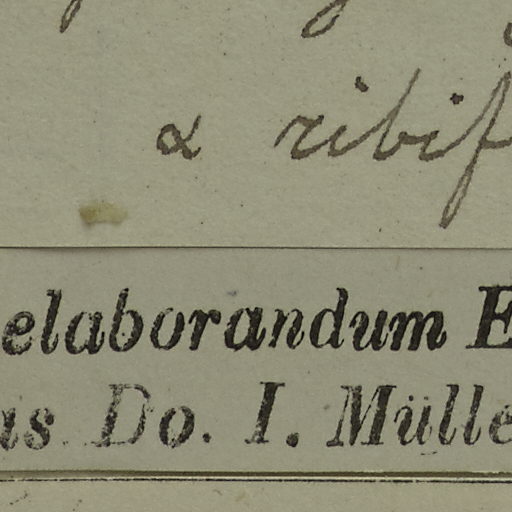 α ribif
elaborandum E
us Do. I. Mülle